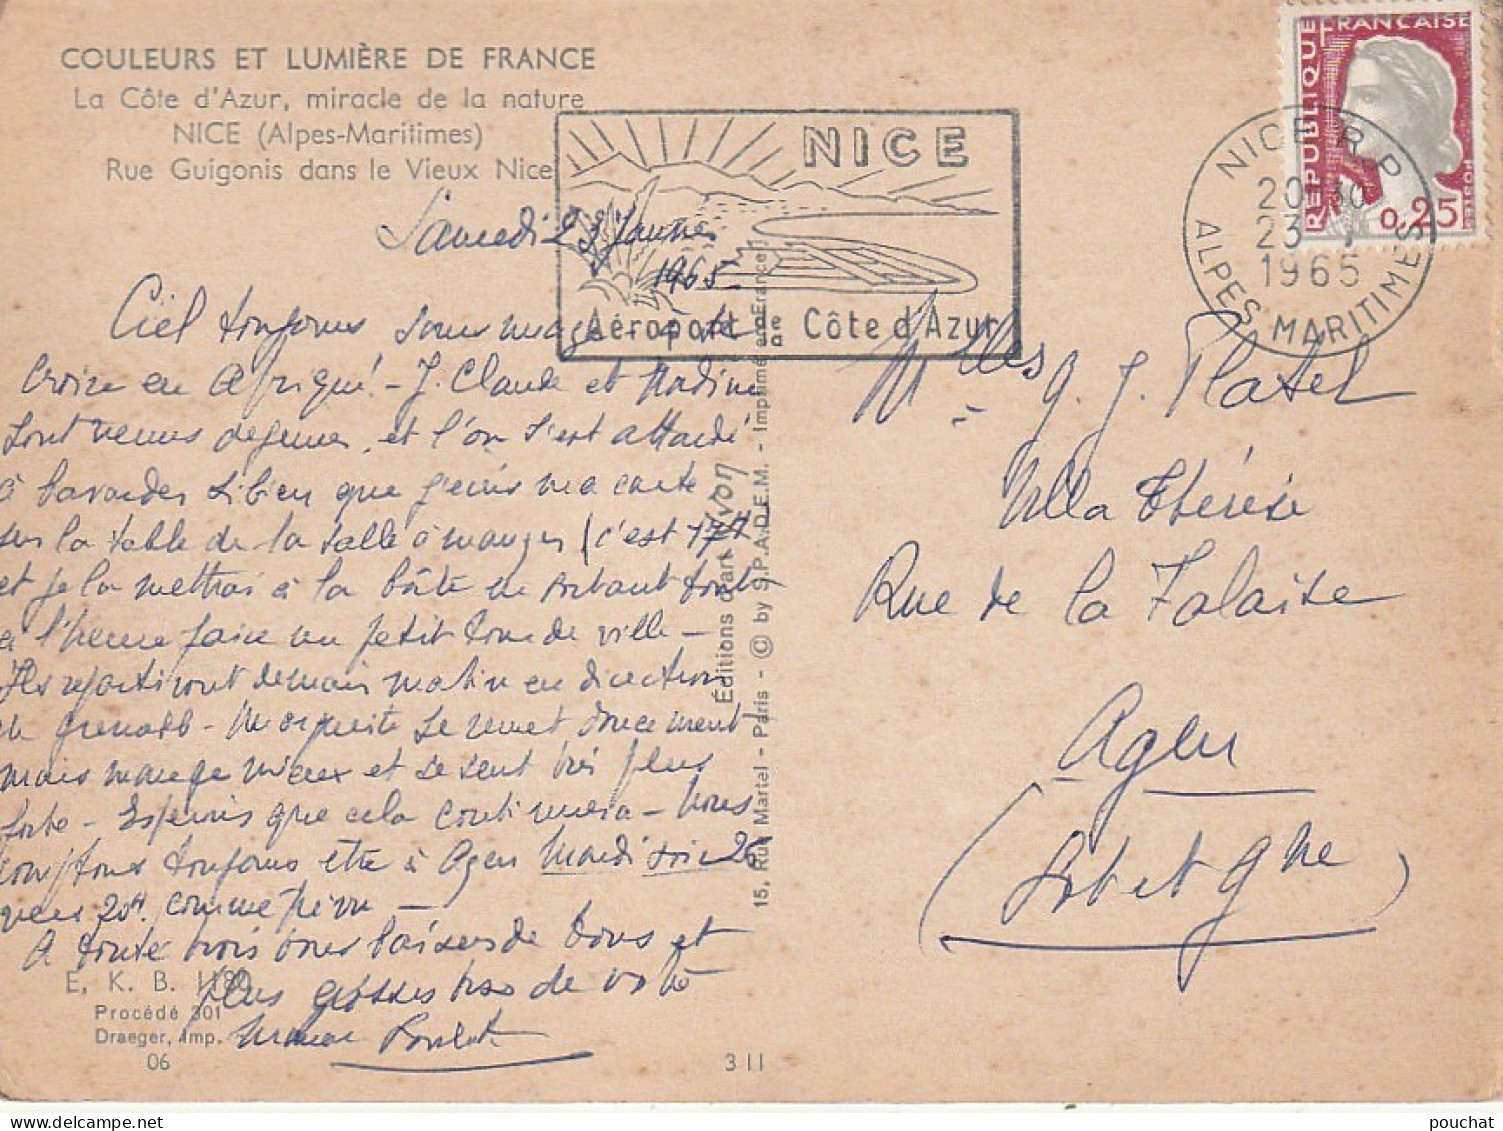 COULEURS ET LUMIÈRE DE FRANCE
La Côte d'Azur, miracle de la nature
NICE (Alpes-Maritimes)
Rue Guigonis dans le Vieux Nice
NICE
Aéroport de Côte d'Azur
RÉPUBLIQUE FRANÇAISE
POSTES
0,25
NICE R.P.
20H30
23 - 1
1965
ALPES MARITIMES
Samedi 23 Janvier
1965
Ciel toujours sans nuage à se
croire en Afrique! - J. Claude et Nadine
sont venus dejeuner, et l'on s'est attardé
à bavarder si bien que j'ecris ma carte
sur la table de la salle à manger (c'est 17H)
et je la mettrai à la boîte en sortant tout
à l'heure faire un petit tour de ville -
Ils repartiront demain matin en direction
de Grenoble - Marguerite se remet doucement
mais mange mieux et se sent très plus
forte - Espérons que cela continuera - Nous
comptons toujours être à Agen Mardi soir 26
vers 20H. comme prévu -
A toute trois bons baisers de tous et
plus grosses de
Maman
Mlles J. J. Platel
Villa Thérèse
Rue de la Falaise
Agen
(Lot et Gne)
Éditions d'art Yvon
15, Rue Martel - Paris - © by S.P.A.D.E.M. - Imprimé en France
E. K. B. 1180
Procédé 301
Draeger, Imp.
06
3 11
pouchat